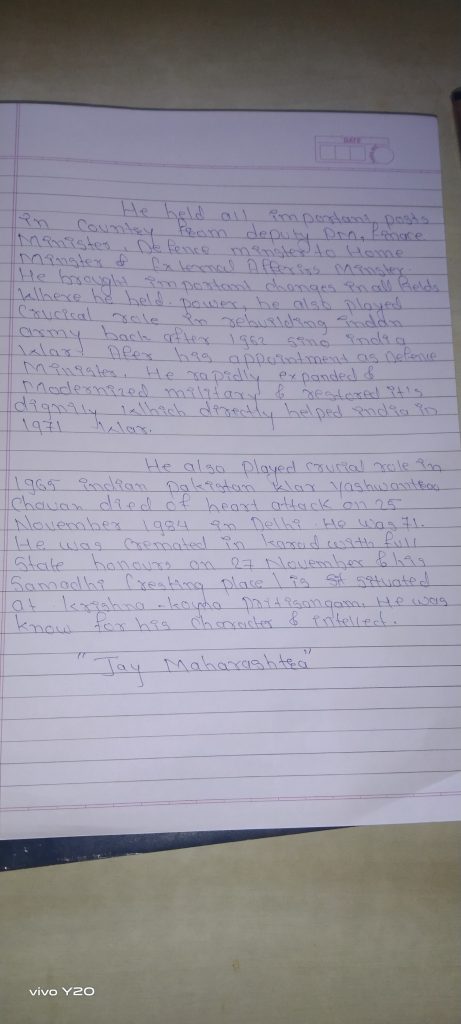 DATE
He held all important posts
in country from deputy Pm, Finace
Minister, Defence minster to Home
Minster & External Afferirs Minster.
He brought important changes in all fields
where he held power, he also played
Crucical role in rebuilding indan
army back after 1962 sino india
War. After his appointment as Defence
Minister. He rapidly expanded &
Modernized military & restored it's
dignity which directly helped india in
1971 War.
He also Played crucial role in
1965 indian pakistan War Yashwantrao
Chavan died of heart attack on 25
November 1984 in Delhi. He was 71.
He was cremated in karad with full
State honours on 27 November & his
Samadhi (resting place) is situated
at krishna-koyna pritisangam. He was
know for his character & intellect.
"Jay Maharashtra"
vivo Y20